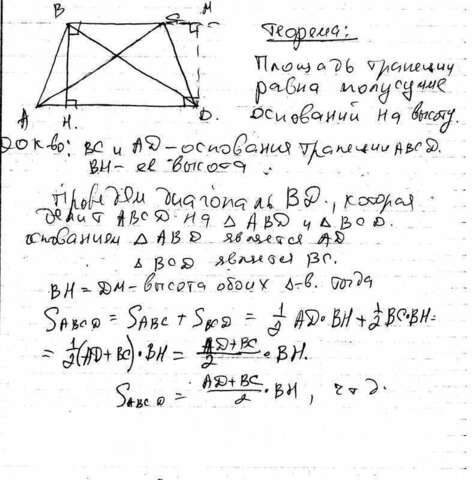 B C M
Теорема:
Площадь трапеции
равна полусумме
оснований на высоту.
A H. D.
Док-во: BC и AD – основания трапеции ABCD.
BH – её высота
Проведём диагональ BD., которая
делит ABCD на △ ABD и △ BCD.
основанием △ ABD является AD
△ BCD является BC.
BH = DM – высота обоих △-в. тогда
S_ABCD = S_ABC + S_BCD = 1/2 AD·BH + 1/2 BC·BH =
= 1/2 (AD + BC)·BH = AD+BC/2 · BH.
S_ABCD = AD+BC/2 · BH, ч т д.